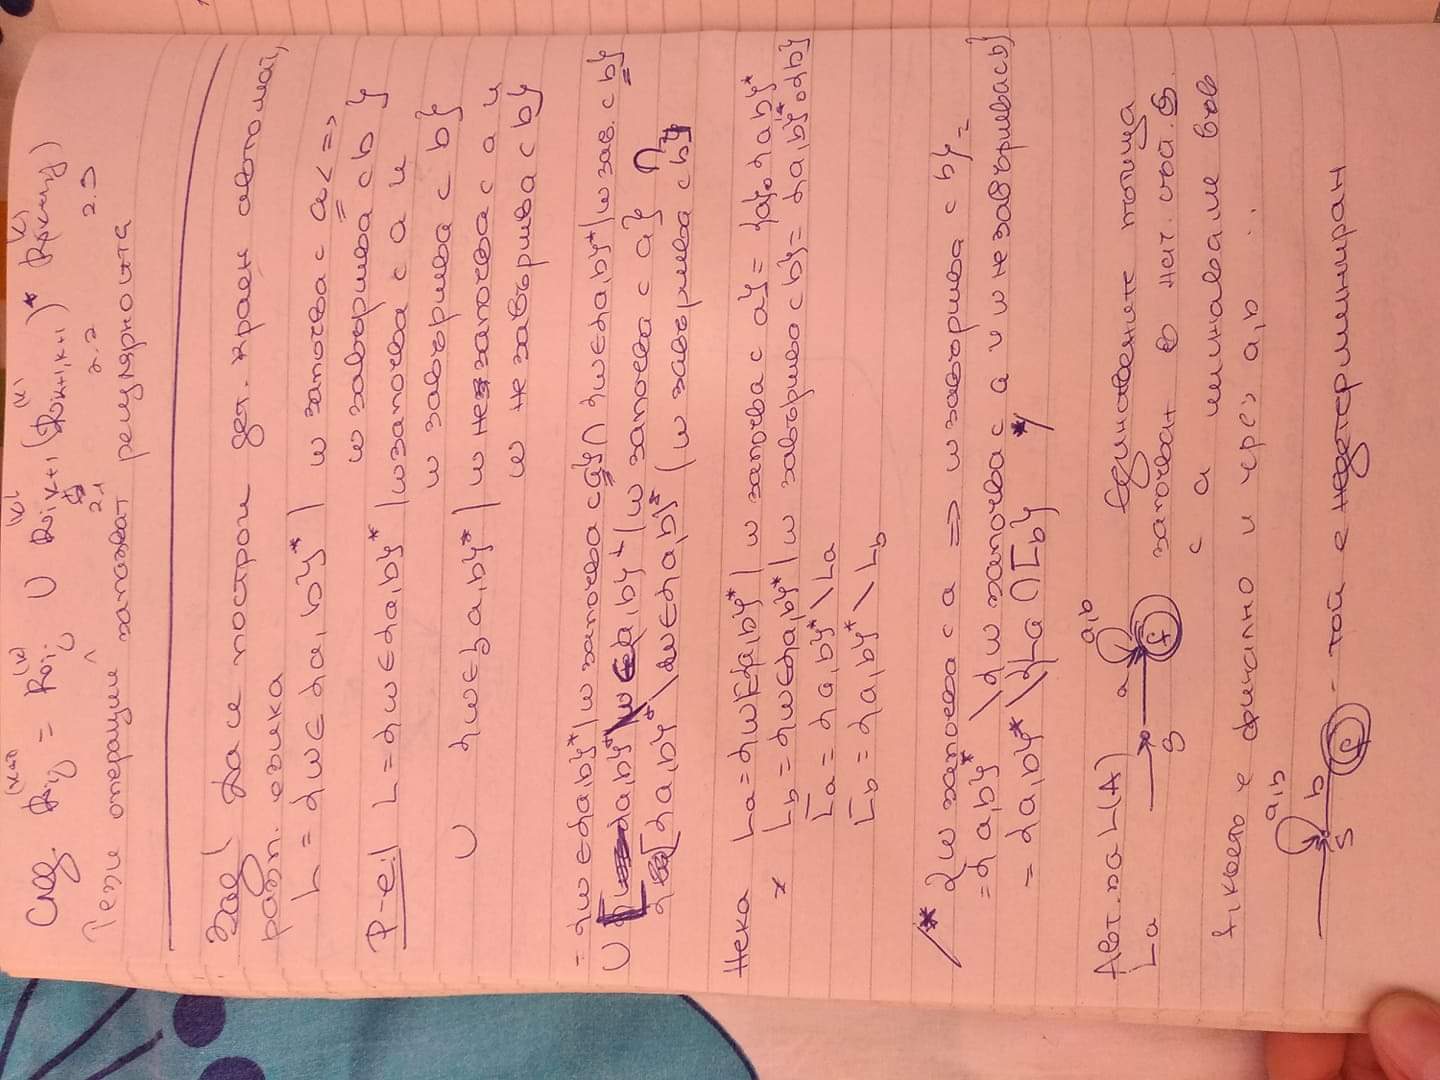 След. R_{0,j}^{(k+1)} = R_{0,j}^{(k)} ∪ R_{0,k+1}^{(k)} (R_{k+1,k+1}^{(k)})* R
2.1 2.2 2.3
Тези операции запазват регулярността
Зад 1 Да се построи дет. краен автомат,
разп. езика
L = {w ∈ {a,b}* | w започва с a <=>
w завършва с b}
Р-е 1 L = {w ∈ {a,b}* | w започва с a и
w завършва с b}
∪ {w ∈ {a,b}* | w не започва с a и
w не завършва с b}
= {w ∈ {a,b}* | w започва с a} ∩ {w ∈ {a,b}* | w зав. с b}
∪ [{a,b}* \ {w ∈ {a,b}* | w започва с a} ∩
{a,b}* \ {w ∈ {a,b}* | w завършва с b}]
Нека La = {w ∈ {a,b}* | w започва с a} = {a}∘{a,b}*
* Lb = {w ∈ {a,b}* | w завършва с b} = {a,b}*∘{b}
L̄a = {a,b}* \ La
L̄b = {a,b}* \ Lb
/* {w започва с a => w завършва с b} =
= {a,b}* \ {w започва с a и w не завършва с b}
= {a,b}* \ {La ∩ L̄b} */
Авт. за L(A) единствените
La
a a,b
s f
започван в нач. със.
с a и минаваме във
f, където е финално и през a, b
a,b
b
s f - той е недетерминиран